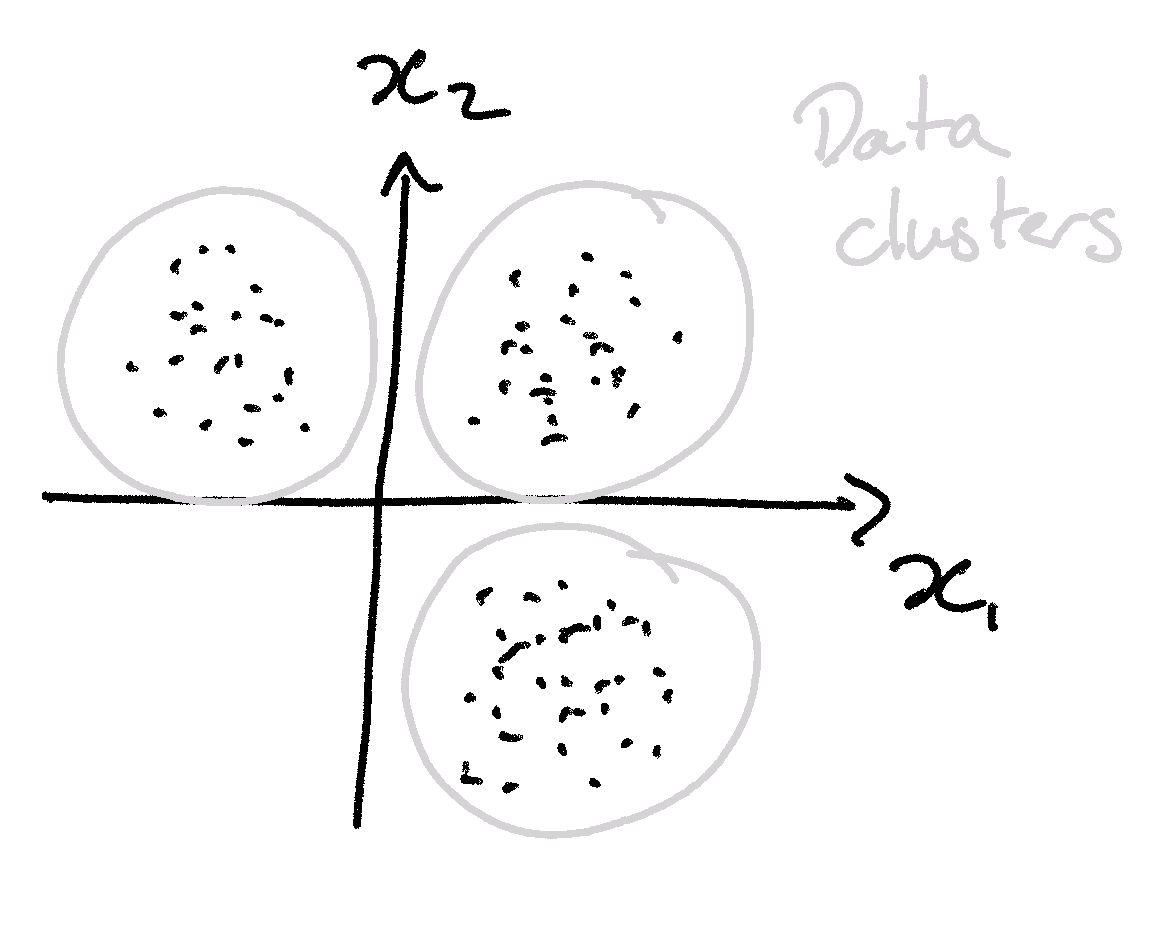 x₂
Data
clusters
x₁